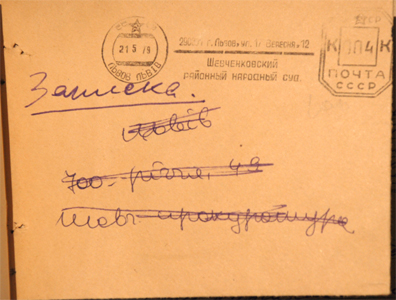 21 5 79
ЛЬВОВ ЛЬВІВ
г. Львов ул. 17 Вересня 12
Шевченковский
районный народный суд.
К 004 К
ПОЧТА
СССР
Записка.
Львів
700-річчя, 49
Шевч прокуратура